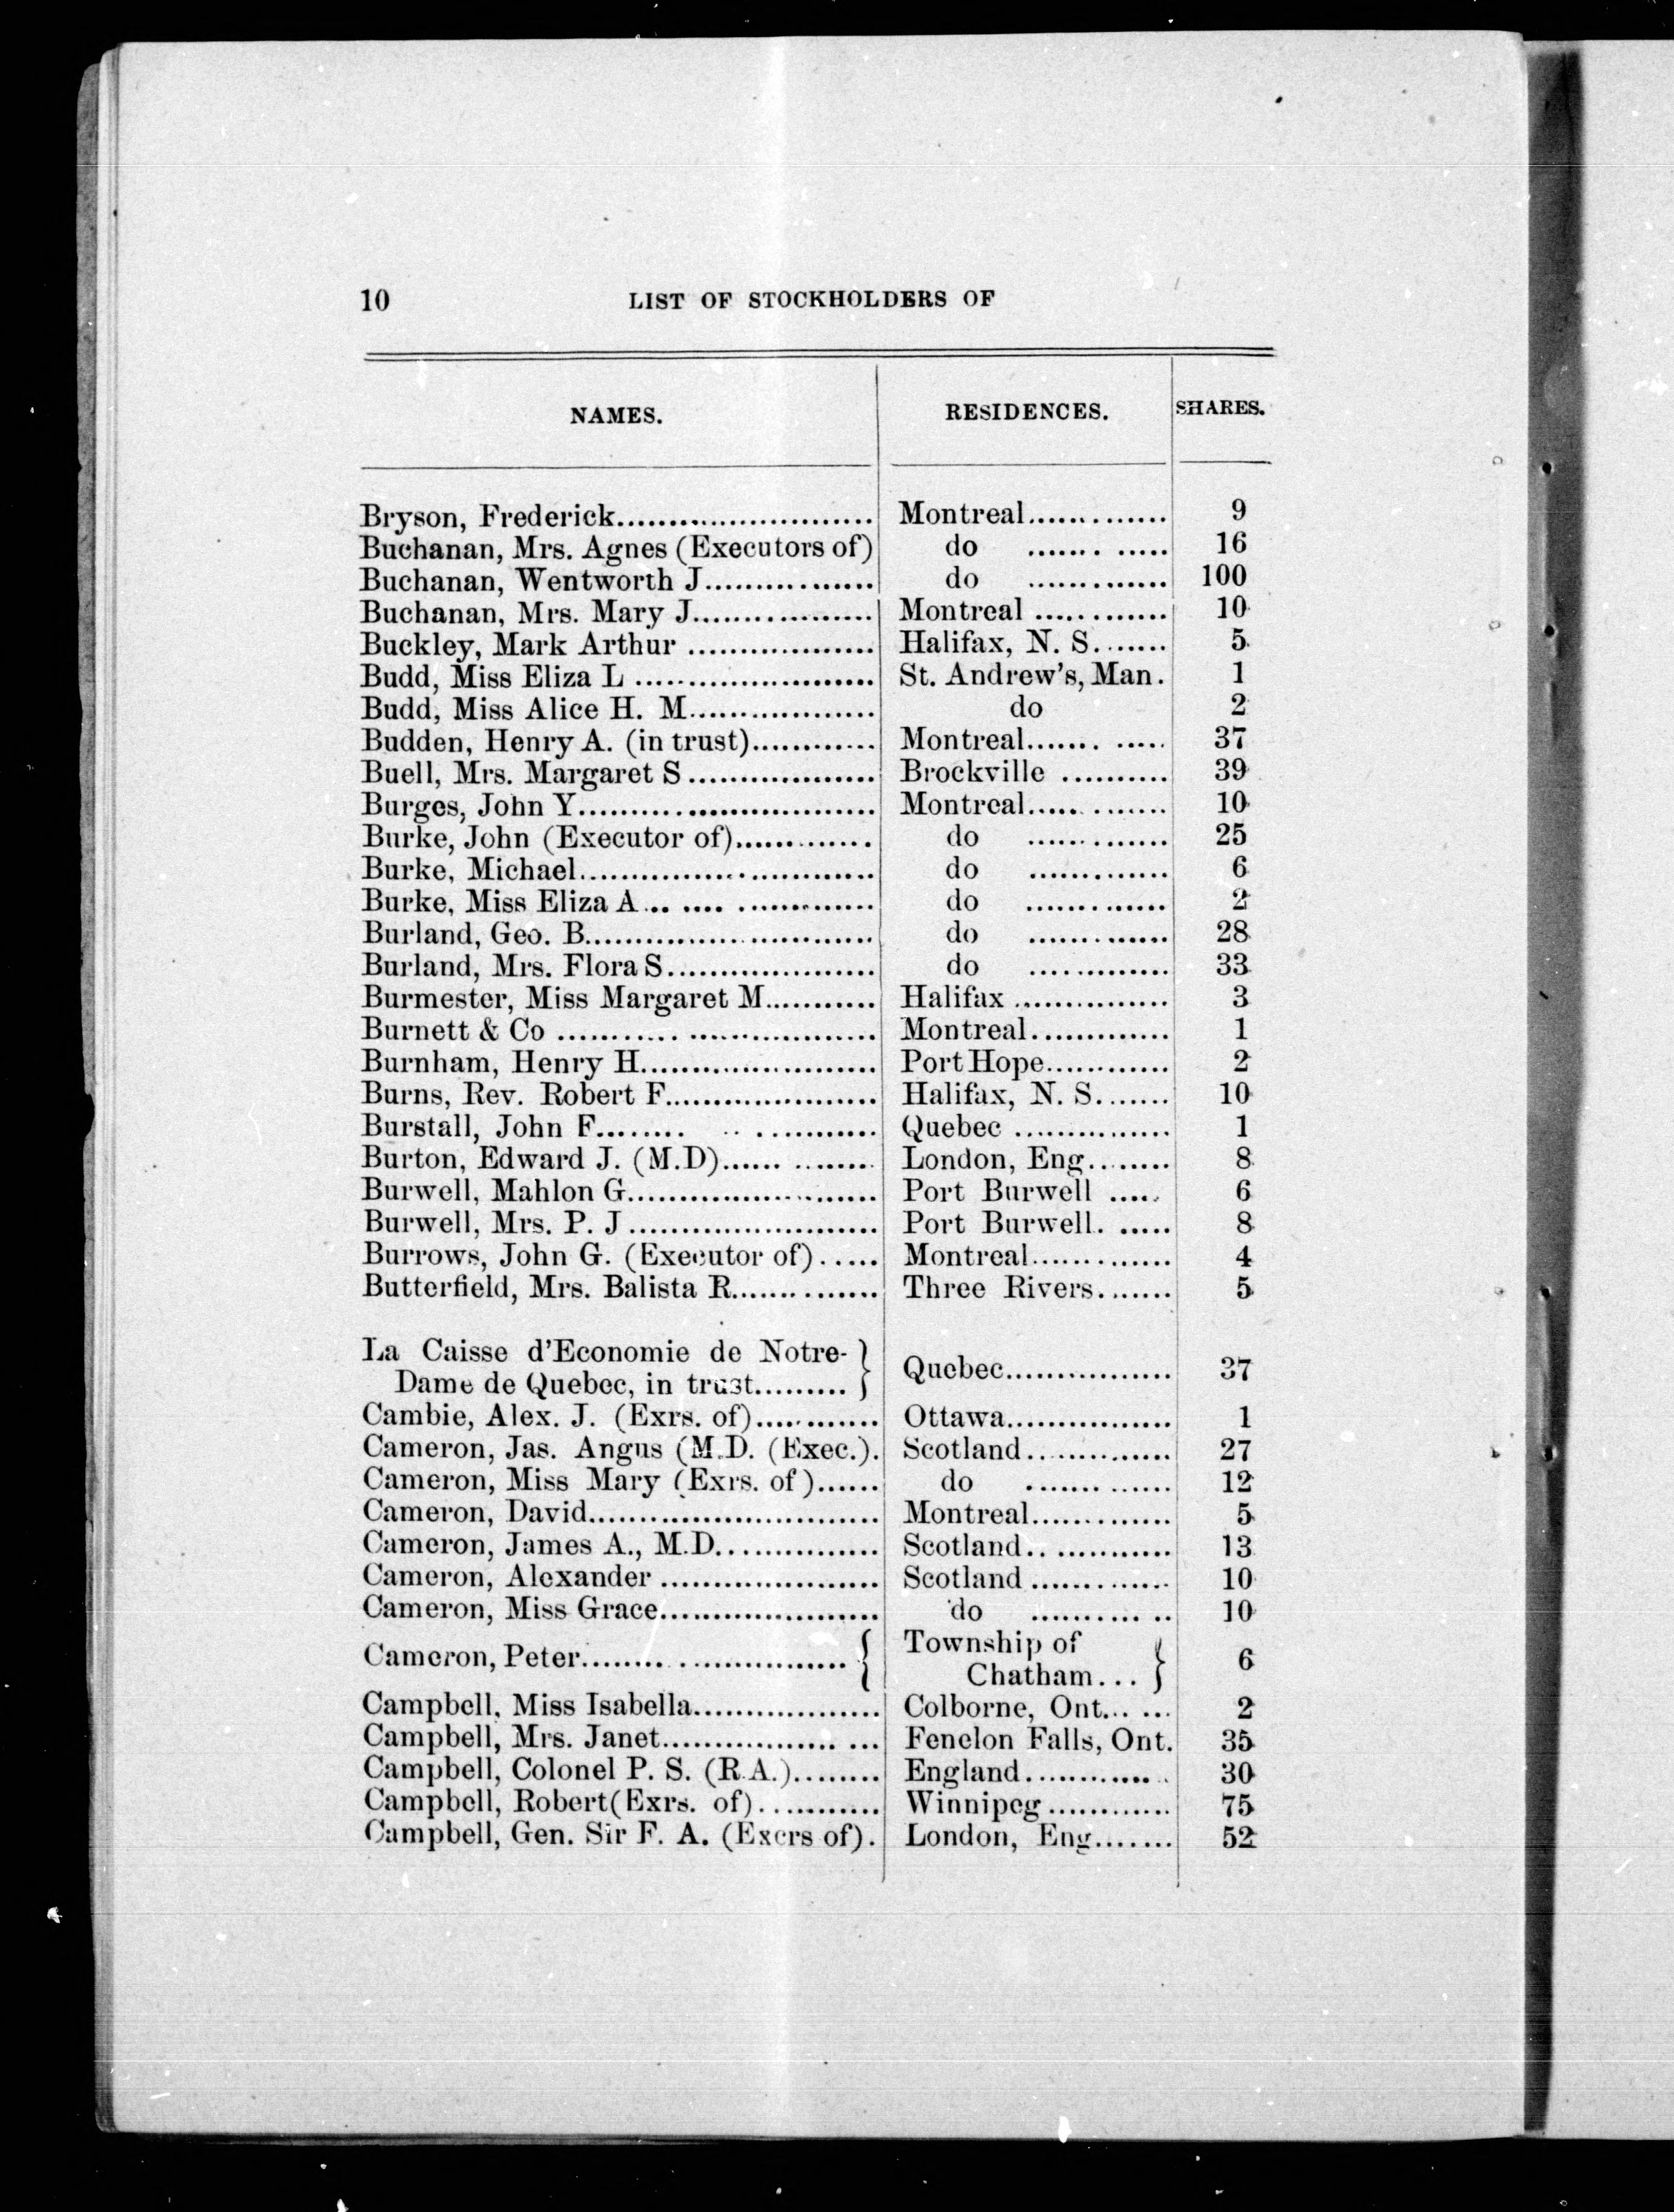 10 LIST OF STOCKHOLDERS OF
NAMES. RESIDENCES. SHARES.
Bryson, Frederick.......................... Montreal............. 9
Buchanan, Mrs. Agnes (Executors of) do ............ 16
Buchanan, Wentworth J................ do ............. 100
Buchanan, Mrs. Mary J................. Montreal ............. 10
Buckley, Mark Arthur .................. Halifax, N. S....... 5
Budd, Miss Eliza L ....................... St. Andrew's, Man. 1
Budd, Miss Alice H. M.................. do 2
Budden, Henry A. (in trust)............ Montreal....... ..... 37
Buell, Mrs. Margaret S .................. Brockville .......... 39
Burges, John Y............................. Montreal............. 10
Burke, John (Executor of)............. do ............. 25
Burke, Michael............................. do ............. 6
Burke, Miss Eliza A... .... ............. do ............. 2
Burland, Geo. B............................ do ............. 28
Burland, Mrs. Flora S.................... do ............. 33
Burmester, Miss Margaret M........... Halifax ............... 3
Burnett & Co ............ .................. Montreal............. 1
Burnham, Henry H....................... Port Hope............ 2
Burns, Rev. Robert F.................... Halifax, N. S....... 10
Burstall, John F........ .. ............ Quebec ............... 1
Burton, Edward J. (M.D)...... ........ London, Eng........ 8
Burwell, Mahlon G........................ Port Burwell ..... 6
Burwell, Mrs. P. J ........................ Port Burwell. ..... 8
Burrows, John G. (Executor of)...... Montreal............. 4
Butterfield, Mrs. Balista R.............. Three Rivers....... 5
La Caisse d'Economie de Notre-
Dame de Quebec, in trust......... } Quebec................ 37
Cambie, Alex. J. (Exrs. of)............ Ottawa................ 1
Cameron, Jas. Angus (M.D. (Exec.). Scotland.............. 27
Cameron, Miss Mary (Exrs. of)...... do ............. 12
Cameron, David............................ Montreal............. 5
Cameron, James A., M.D................ Scotland.. ........... 13
Cameron, Alexander ..................... Scotland ............. 10
Cameron, Miss Grace..................... do .......... .. 10
Cameron, Peter........ ................. { Township of
Chatham... } 6
Campbell, Miss Isabella.................. Colborne, Ont... ... 2
Campbell, Mrs. Janet................. ... Fenelon Falls, Ont. 35
Campbell, Colonel P. S. (R.A.)........ England............. 30
Campbell, Robert(Exrs. of)............ Winnipeg............ 75
Campbell, Gen. Sir F. A. (Excrs of). London, Eng....... 52